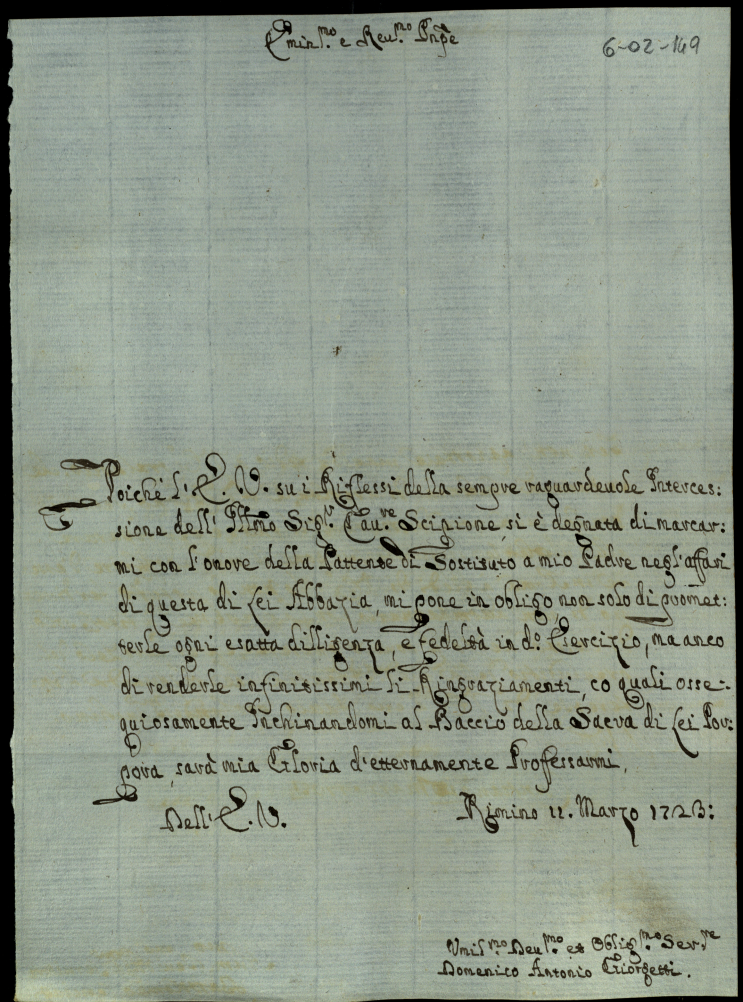 Emin.mo e Reu.mo Pnpe
6-02-149
Poiché l'E. V. su i Riflessi della sempre raguardeuole Interces:
sione dell' Illmo Sig.r Cau.re Scipione, si è degnata di marcar:
mi con l'onore della Pattente di Sostituto a mio Padre negl'affari
di questa di Lei Abbazia, mi pone in obligo, non solo di promet:
terle ogni esatta dilligenza, e fedeltà in d.o Esercizio, ma anco
di renderle infinitissimi li Ringraziamenti, co quali osse:
quiosamente Inchinandomi al Baccio della Sacra di Lei Por:
pora, sarà mia Gloria d'etternamente Professarmi.
Dell'E. V.
Rimino 12. Marzo 1723:
Vmil.mo Deu.mo et Oblig.mo Ser.re
Domenico Antonio Giorgetti.